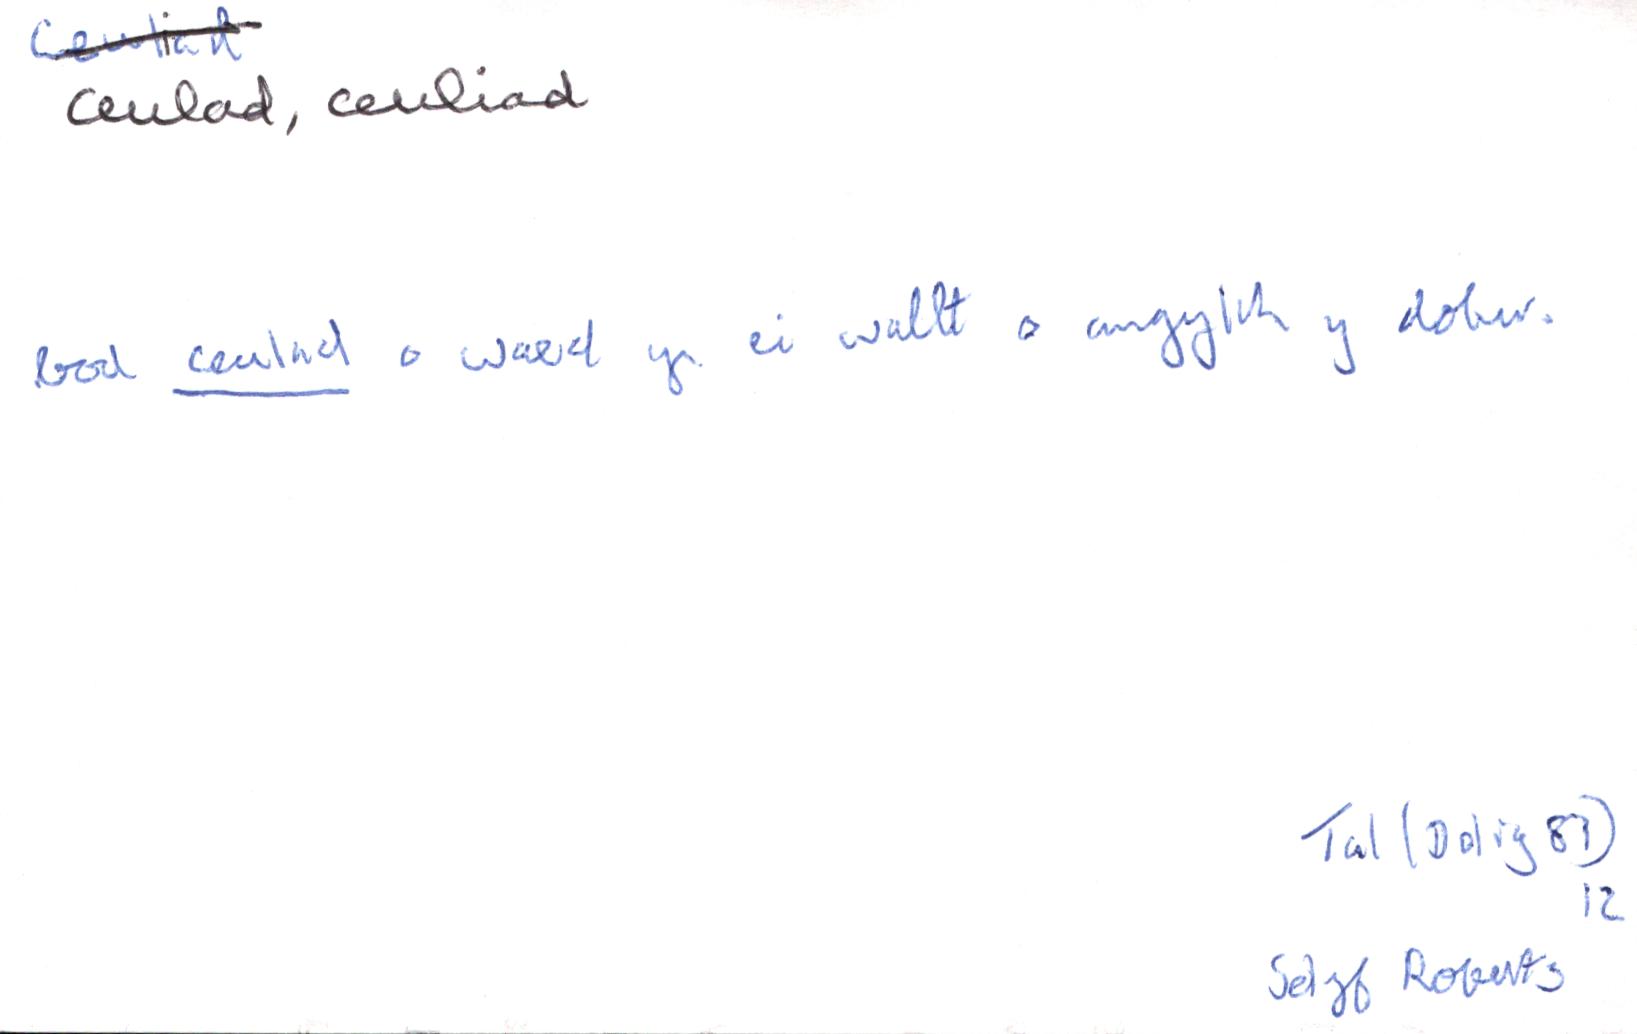 Ceuliad
ceulad, ceuliad
bod ceulad o waed yn ei wallt o amgylch y dolur.
Tal (Dolig 87)
12
Selyf Roberts